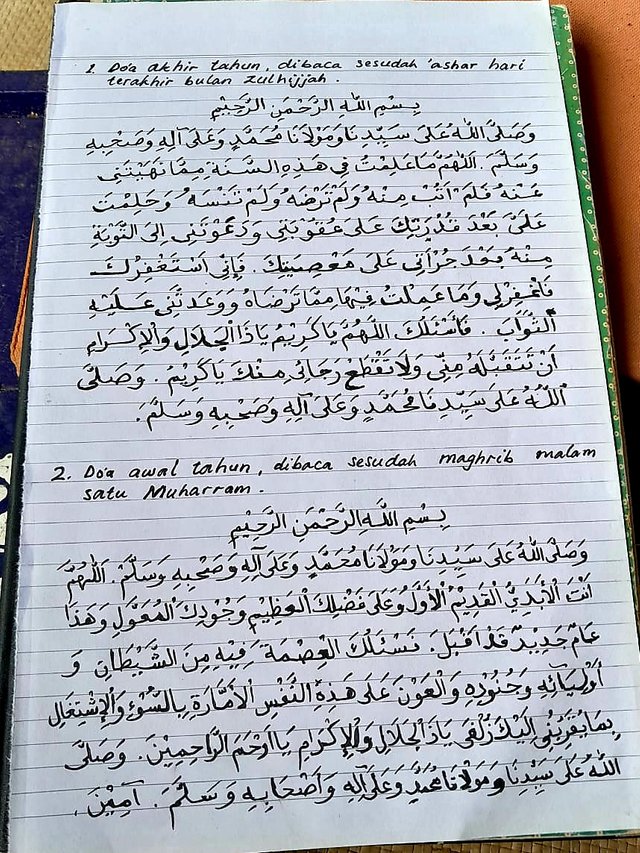 1. Do'a akhir tahun, dibaca sesudah 'ashar hari
terakhir bulan zulhijjah.
بِسْمِ اللّٰهِ الرَّحْمٰنِ الرَّحِيْمِ
وَصَلَّى اللّٰهُ عَلَى سَيِّدِنَا وَمَوْلَانَا مُحَمَّدٍ وَعَلَى آلِهِ وَصَحْبِهِ
وَسَلَّمَ. اَللّٰهُمَّ مَا عَلِمْتُ فِي هَذِهِ السَّنَةِ مِمَّا نَهَيْتَنِي
عَنْهُ فَلَمْ اَتُبْ مِنْهُ وَلَمْ تَرْضَهُ وَلَمْ تَنْسَهُ وَحَلِمْتَ
عَلَيَّ بَعْدَ قُدْرَتِكَ عَلَى عُقُوْبَتِي وَدَعَوْتَنِى اِلَى التَّوْبَةِ
مِنْهُ بَعْدَ جُرْاَتِى عَلَى مَعْصِيَتِكَ. فَاِنِّى اَسْتَغْفِرُكَ
فَاغْفِرْلِى وَمَا عَمِلْتُ فِيْهَا مِمَّا تَرْضَاهُ وَوَعَدْتَنِى عَلَيْهِ
الثَّوَابَ. فَأَسْئَلُكَ اللّٰهُمَّ يَا كَرِيْمُ يَاذَا الْجَلَالِ وَالْاِكْرَامِ
اَنْ تَتَقَبَّلَهُ مِنِّى وَلَا تَقْطَعْ رَجَائِى مِنْكَ يَا كَرِيْمُ. وَصَلَّى
اللّٰهُ عَلَى سَيِّدِنَا مُحَمَّدٍ وَعَلَى آلِهِ وَصَحْبِهِ وَسَلَّمَ.
2. Do'a awal tahun, dibaca sesudah maghrib malam
satu Muharram.
بِسْمِ اللّٰهِ الرَّحْمٰنِ الرَّحِيْمِ
وَصَلَّى اللّٰهُ عَلَى سَيِّدِنَا وَمَوْلَانَا مُحَمَّدٍ وَعَلَى آلِهِ وَصَحْبِهِ وَسَلَّمْ. اَللّٰهُمَّ
اَنْتَ الْاَبَدِيُّ الْقَدِيْمُ الْاَوَّلُ وَعَلَى فَضْلِكَ الْعَظِيْمِ وَجُوْدِكَ الْمُعَوَّلِ وَهَذَا
عَامٌ جَدِيْدٌ قَدْ اَقْبَلَ. نَسْئَلُكَ الْعِصْمَةَ فِيْهِ مِنَ الشَّيْطَانِ وَ
اَوْلِيَآئِهِ وَجُنُوْدِهِ وَالْعَوْنَ عَلَى هَذِهِ النَّفْسِ الْاَمَّارَةِ بِالسُّوْءِ وَالْاِشْتِغَالِ
بِمَا يُقَرِّبُنِى اِلَيْكَ زُلْفَى يَاذَا الْجَلَالِ وَالْاِكْرَامِ يَا اَرْحَمَ الرَّاحِمِيْنَ. وَصَلَّى
اللّٰهُ عَلَى سَيِّدِنَا وَمَوْلَانَا مُحَمَّدٍ وَعَلَى آلِهِ وَاَصْحَابِهِ وَسَلَّمَ. آمِيْنَ.